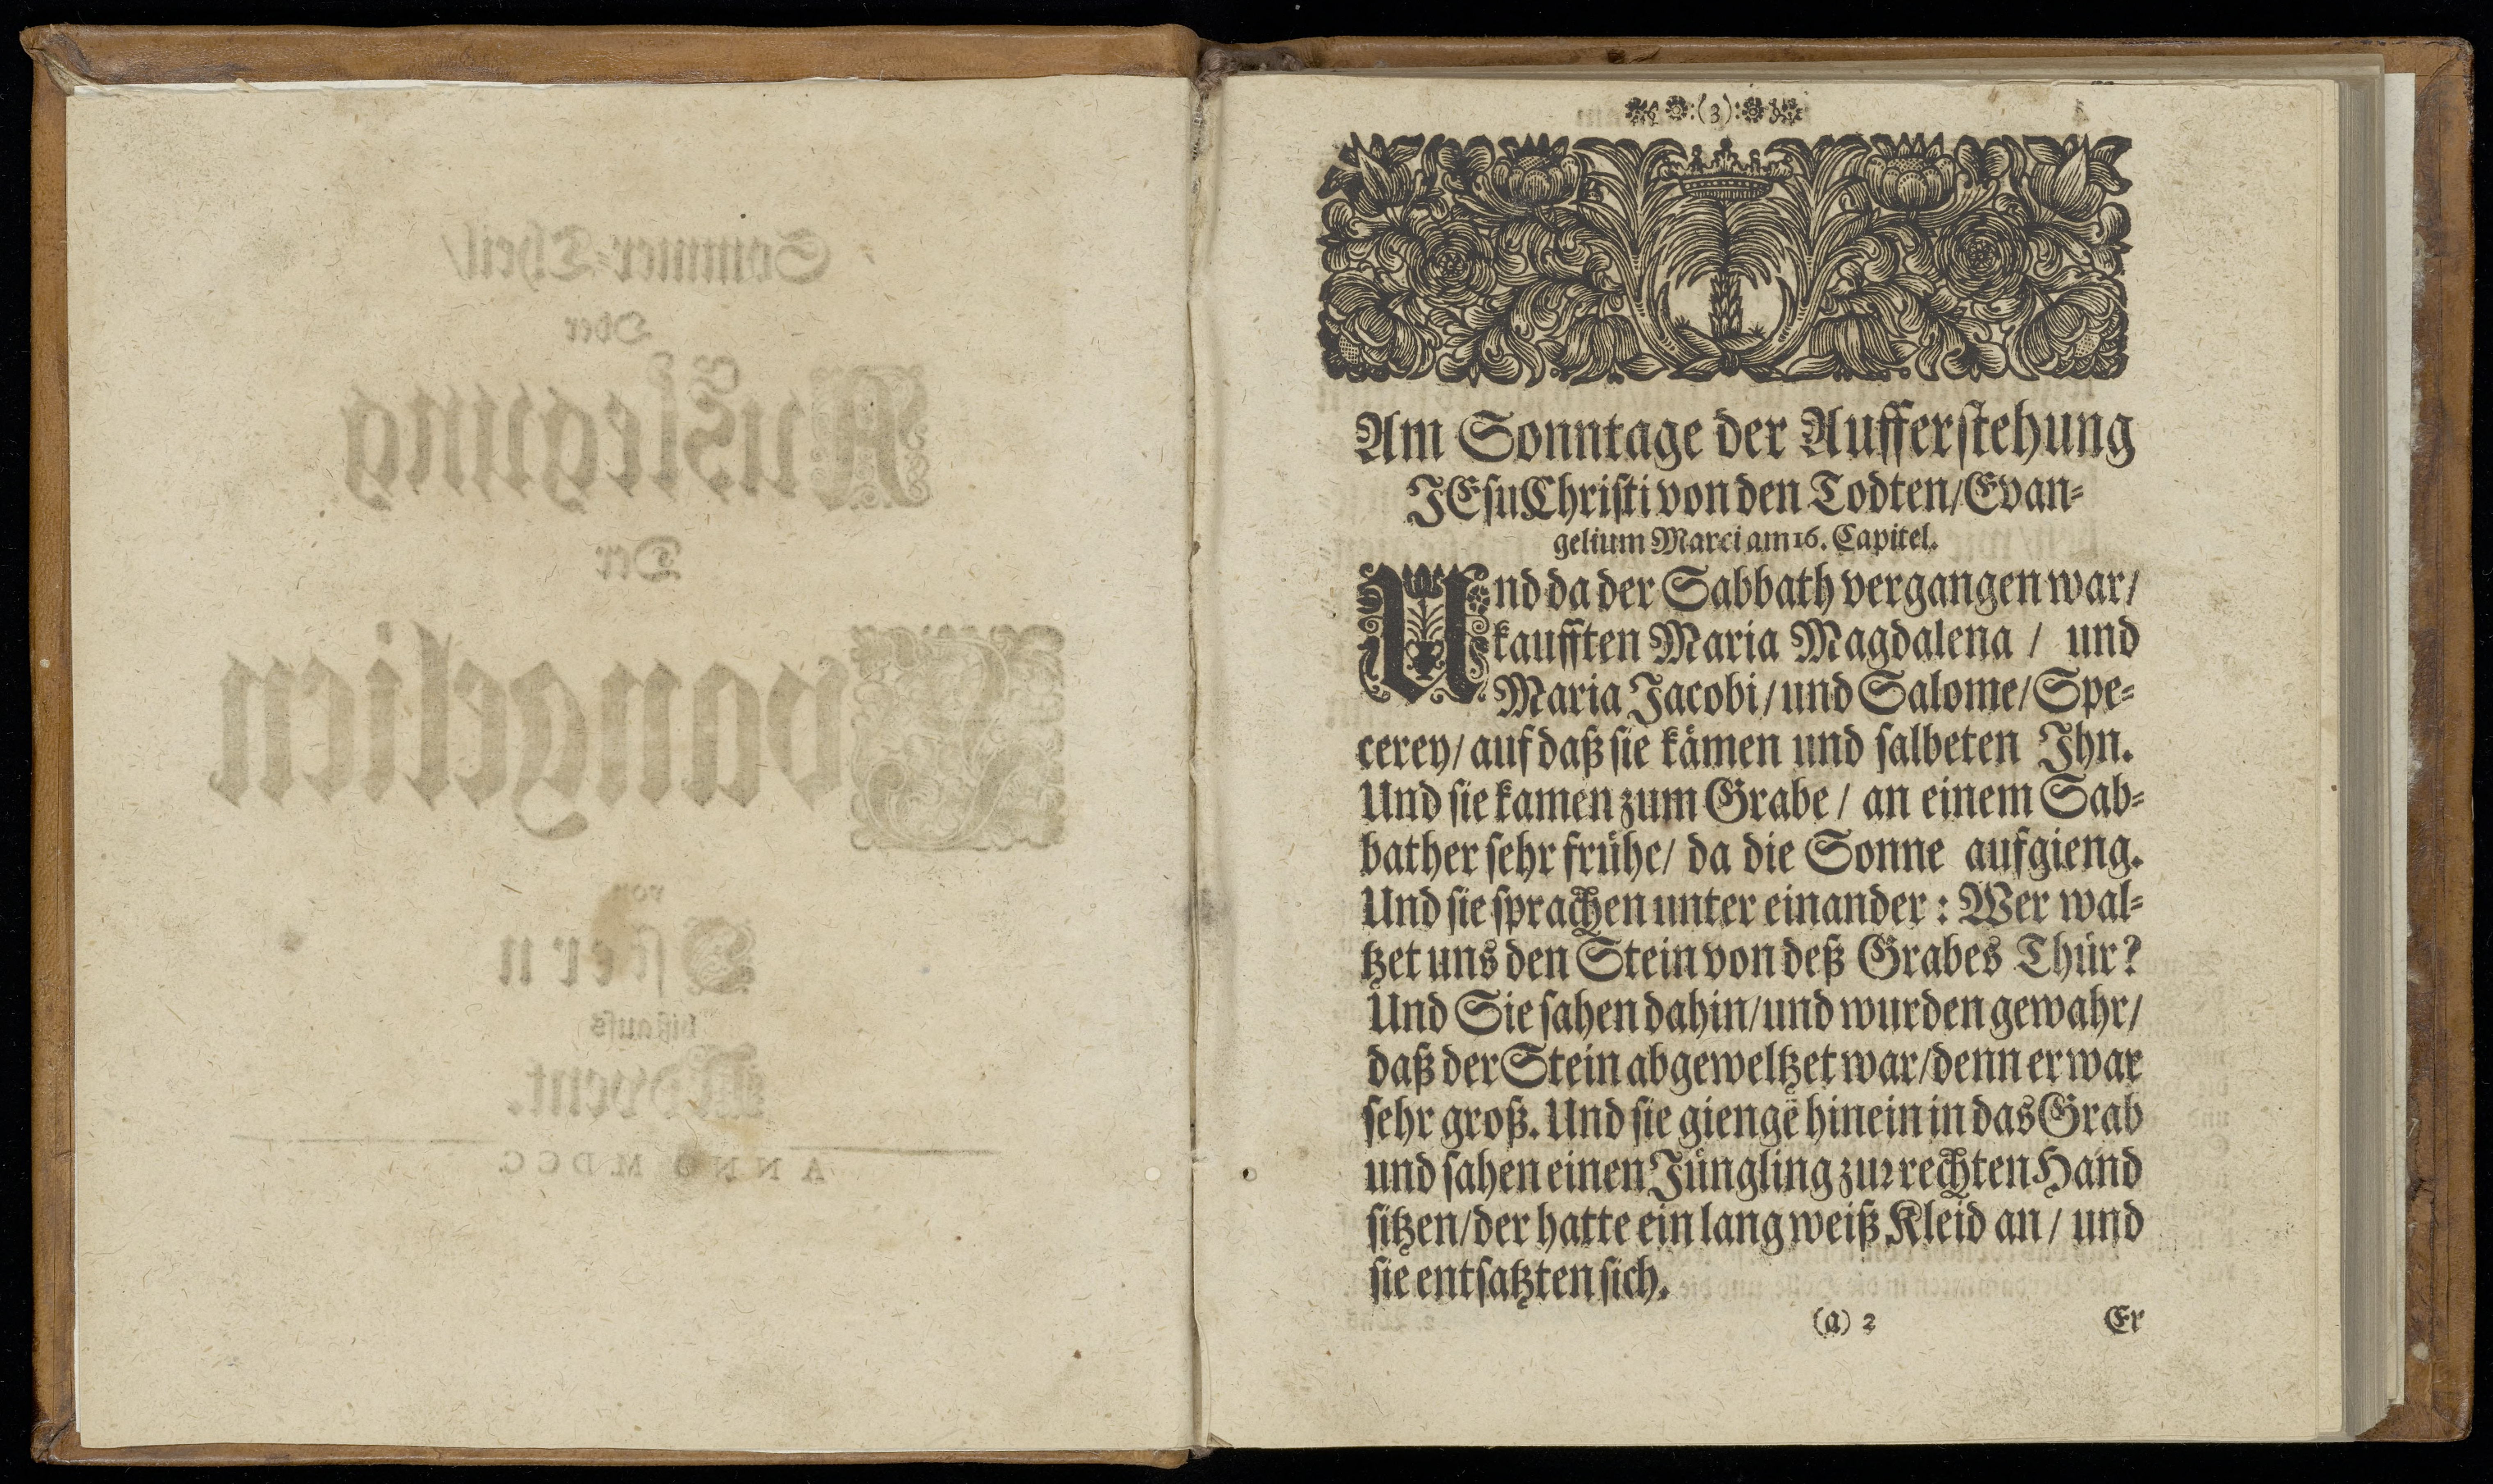 Sommer-Theil/
Oder
Auslegung
Der
Evangelien
von
Ostern
bißaufs
Advent.
ANNO M.DCC.
:(3):
Am Sonntage der Aufferstehung
JEsu Christi von den Todten/Evan-
gelium Marci am 16. Capitel.
Und da der Sabbath vergangen war/
kaufften Maria Magdalena / und
Maria Jacobi/und Salome/Spe-
cerey/ auf daß sie kämen und salbeten Ihn.
Und sie kamen zum Grabe / an einem Sab-
bather sehr frühe/ da die Sonne aufgieng.
Und sie sprachen unter einander : Wer wal-
tzet uns den Stein von deß Grabes Thür?
Und Sie sahen dahin/und wurden gewahr/
daß der Stein abgeweltzet war/denn er war
sehr groß. Und sie giengē hinein in das Grab
und sahen einen Jüngling zur rechten Hand
sitzen/der hatte ein lang weiß Kleid an / und
sie entsatzten sich.
(a) 2 Er